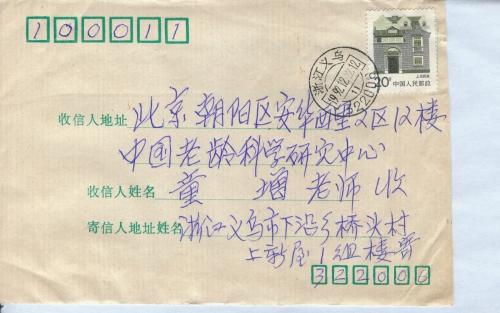 100011
浙江义乌
1992.12.12
11
322000
20分 中国人民邮政
上海民居
收信人地址 北京朝阳区安华西里2区12楼
中国老龄科学研究中心
收信人姓名 童 增 老师 收
寄信人地址姓名 浙江义乌市下沿乡桥头村
上新屋1组 楼
322006